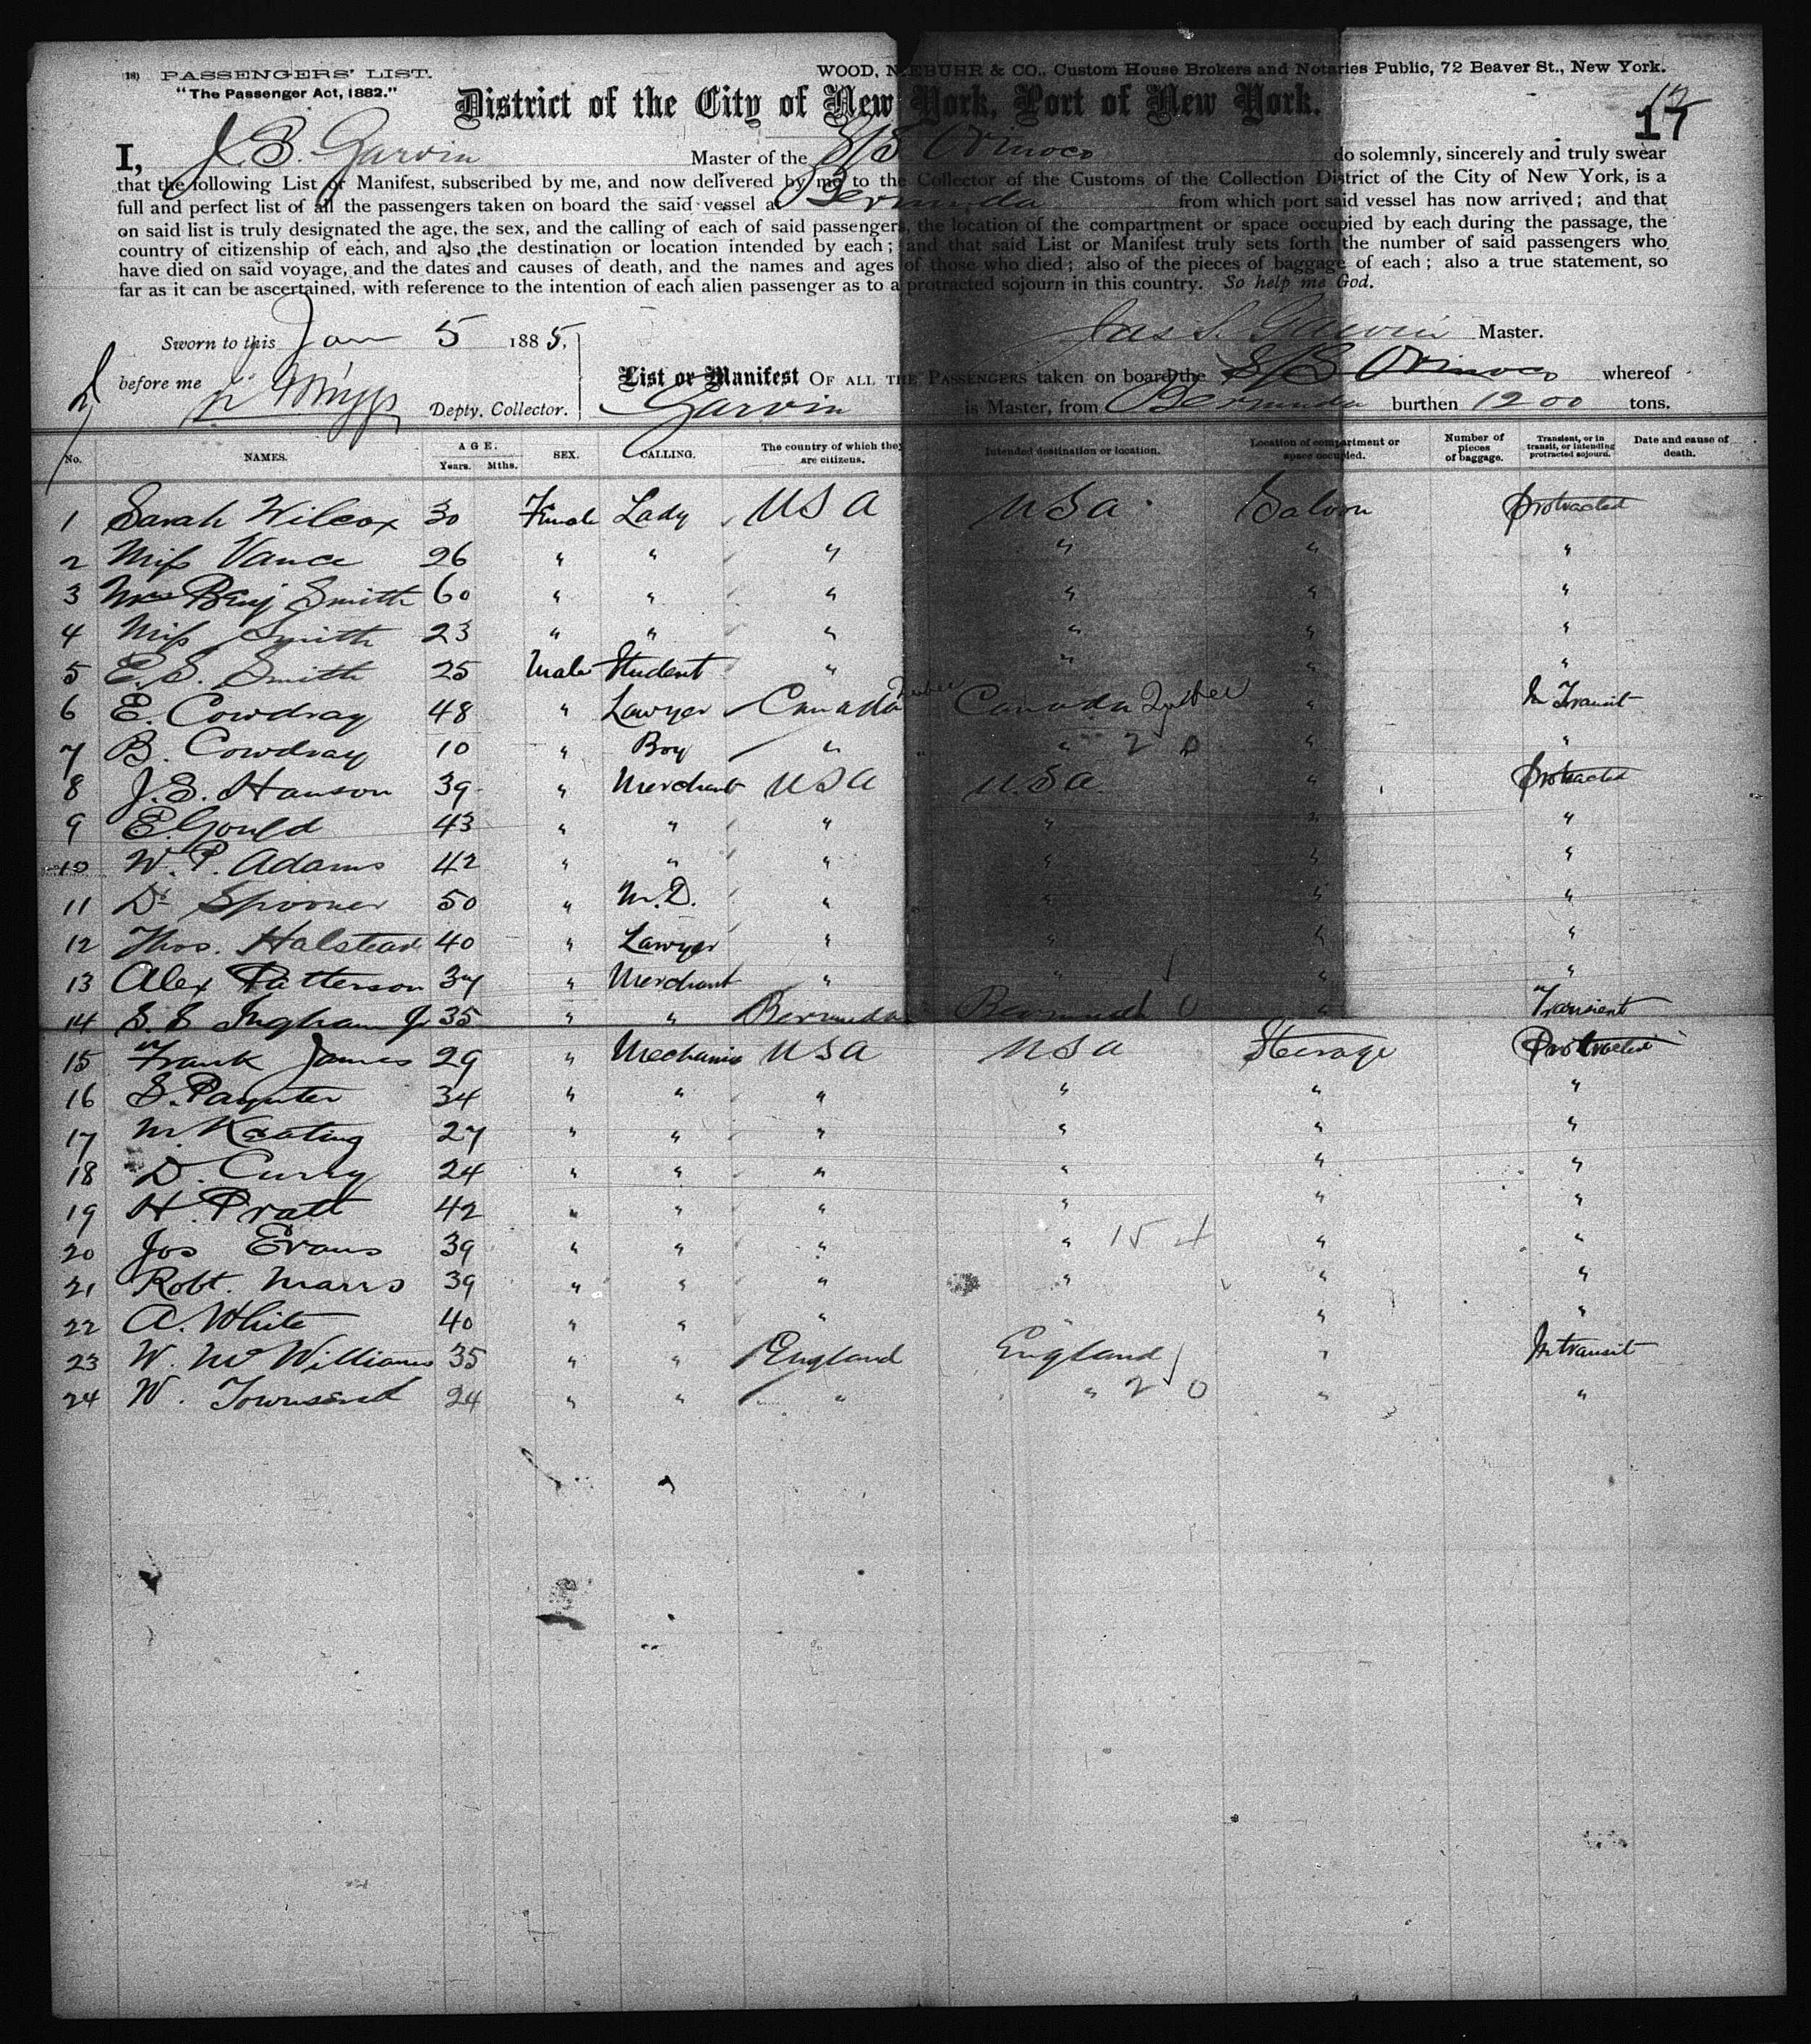 18) PASSENGERS' LIST. WOOD, NIEBUHR & CO., Custom House Brokers and Notaries Public, 72 Beaver St., New York.
"The Passenger Act, 1882."
District of the City of New York, Port of New York.
17
I, J. S. Garvin Master of the S/S Orinoco do solemnly, sincerely and truly swear
that the following List or Manifest, subscribed by me, and now delivered by me to the Collector of the Customs of the Collection District of the City of New York, is a
full and perfect list of all the passengers taken on board the said vessel at Bermuda from which port said vessel has now arrived; and that
on said list is truly designated the age, the sex, and the calling of each of said passengers, the location of the compartment or space occupied by each during the passage, the
country of citizenship of each, and also the destination or location intended by each; and that said List or Manifest truly sets forth the number of said passengers who
have died on said voyage, and the dates and causes of death, and the names and ages of those who died; also of the pieces of baggage of each; also a true statement, so
far as it can be ascertained, with reference to the intention of each alien passenger as to a protracted sojourn in this country. So help me God.
Sworn to this Jan 5 1885, Jas. S. Garvin Master.
before me Depty. Collector. List or Manifest OF ALL THE PASSENGERS taken on board the S/S Orinoco whereof
Garvin is Master, from Bermuda burthen 1200 tons.
No. NAMES. AGE. Years. Mths. SEX. CALLING. The country of which they are citizens. Intended destination or location. Location of compartment or space occupied. Number of pieces of baggage. Transient, or in transit, or intending protracted sojourn. Date and cause of death.
1 Sarah Wilcox 30 Female Lady USA USA Saloon Protracted
2 Miss Vance 26 " " " " " "
3 Mrs Benj Smith 60 " " " " " "
4 Miss Smith 23 " " " " " "
5 E. S. Smith 25 Male Student " " " "
6 E. Cowdray 48 " Lawyer Canada Quebec Canada Quebec " In Transit
7 B. Cowdray 10 " Boy " " 2 0 " "
8 J. E. Hanson 39 " Merchant USA USA " Protracted
9 E. Gould 43 " " " " " "
10 W. P. Adams 42 " " " " " "
11 Dr Spooner 50 " M.D. " " " "
12 Thos. Halstead 40 " Lawyer " " " "
13 Alex Patterson 37 " Merchant " " " "
14 S. S. Ingham Jr 35 " " Bermuda Bermuda 0 " Transient
15 Frank James 29 " Mechanic USA USA Steerage Protracted
16 S. Paynter 34 " " " " " "
17 M. Keating 27 " " " " " "
18 D. Curry 24 " " " " " "
19 H. Pratt 42 " " " " " "
20 Jos Evans 39 " " " " 15 4 " "
21 Robt. Marrs 39 " " " " " "
22 A. White 40 " " " " " "
23 W. McWilliams 35 " " England England " In transit
24 W. Townsend 24 " " " " 2 0 " "